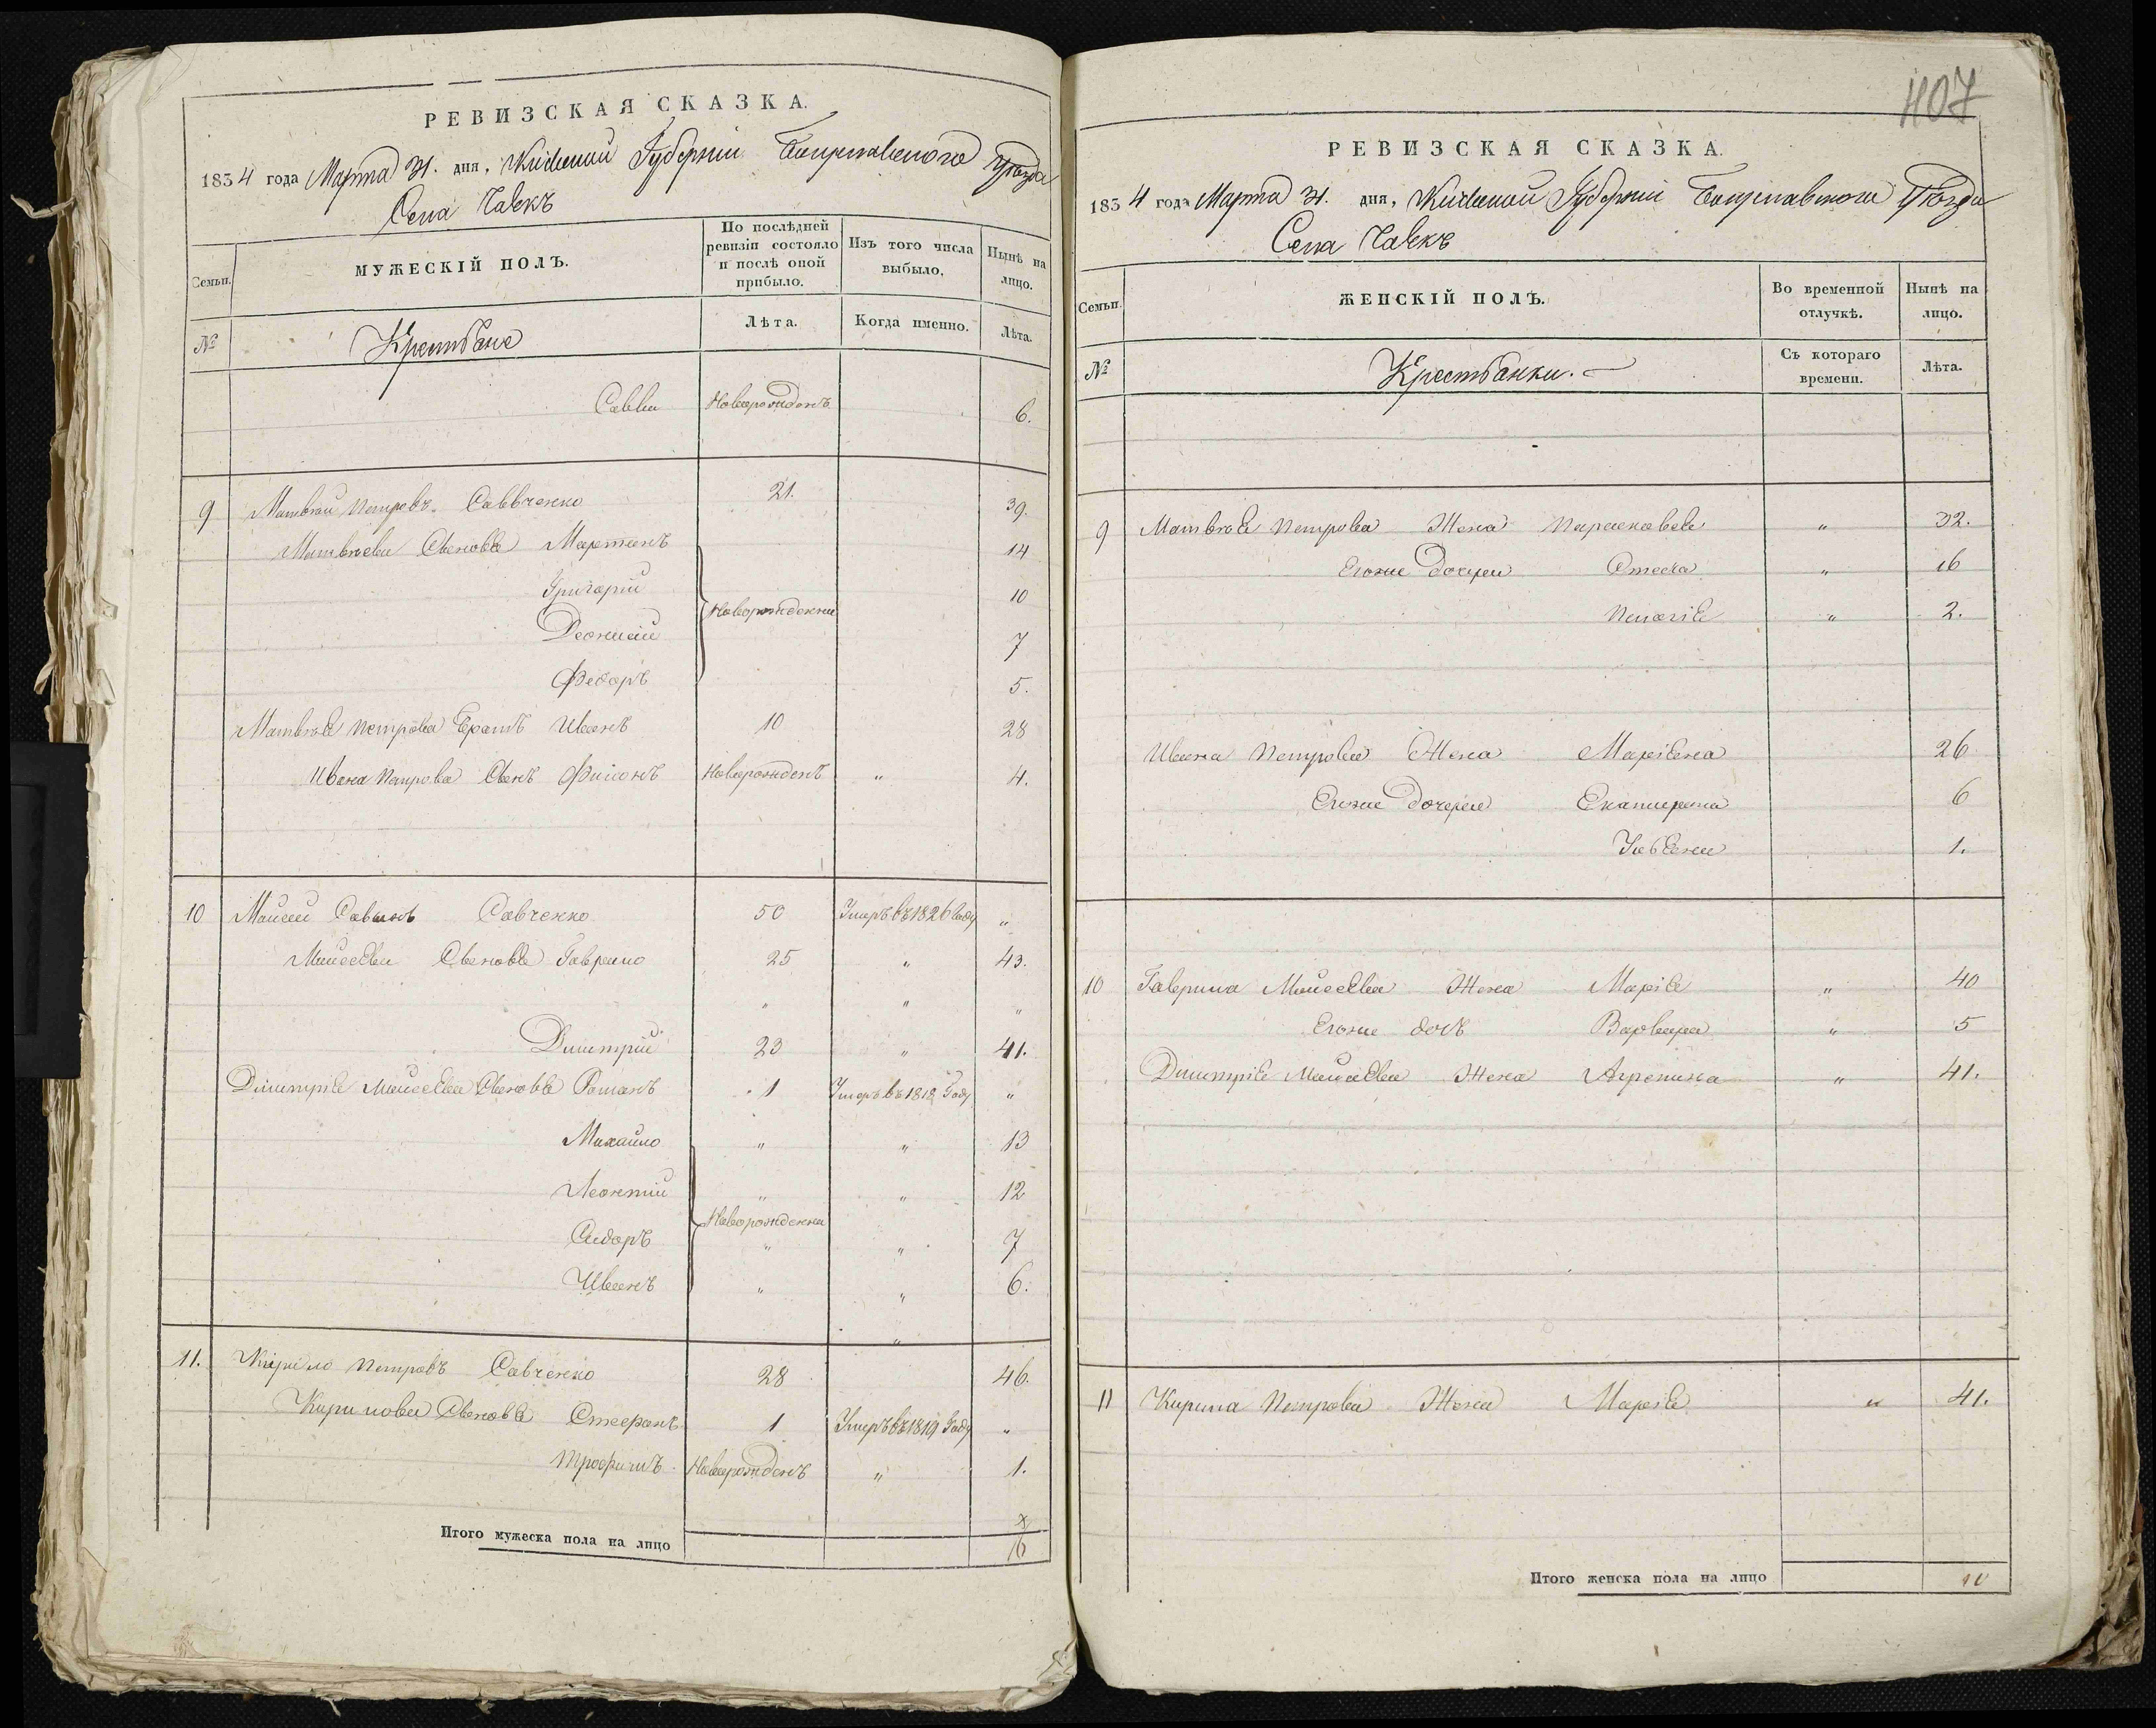 РЕВИЗСКАЯ СКАЗКА.
1834 года Марта 31. дня, Кіевской Губерніи Богуславского Уѣзда
Села
Семьи.
МУЖЕСКІЙ ПОЛЪ.
По послѣдней ревизіи состояло и послѣ оной прибыло.
Изъ того числа выбыло.
Нынѣ на лицо.
№
Крестьяне
Лѣта.
Когда именно.
Лѣта.
Савва Новорожденъ 6.
9 Матвѣй Петровъ Саввченко 21. 39.
Матвѣева Сыновья Мартинъ 14
Григорій 10
Новорожденни
Деонисій 7
Федоръ 5.
Матвѣя Петрова Братъ Иванъ 10 28
Ивана Петрова Сынъ Филонъ Новорожденъ " 4.
10 Моисей Савинъ Савченко 50 Умеръ въ 1826 Году "
Моисеева Сыновья Гаврило 25 " 43.
" " "
Димитрій 23 " 41.
Димитрія Моисеева Сыновья Романъ 1 Умеръ въ 1818 Году "
Михайло " " 13
Леонтій " " 12
Новорожденни
Сидоръ " " 7
Иванъ " " 6.
"
11. Кирило Петровъ Савченко 28 46.
Кирилова Сыновья Стефанъ 1 Умеръ въ 1819 Году "
Трофимъ Новорожденъ " 1.
Итого мужеска пола на лицо 16
407
РЕВИЗСКАЯ СКАЗКА.
1834 года Марта 31. дня, Кіевской Губерніи Богуславского Уѣзда
Села
Семьи.
ЖЕНСКІЙ ПОЛЪ.
Во временной отлучкѣ.
Нынѣ на лицо.
№
Крестьянки.
Съ котораго времени.
Лѣта.
9 Матвѣя Петрова Жена Парасковея " 32.
Егоже Дочери Стеха " 16
Пелагія " 2.
Ивана Петрова Жена Маріяна 26
Егоже Дочери Екатерина 6
Ульяна 1.
10 Гаврила Моисеева Жена Марія " 40
Егоже дочь Варвара " 5
Димитрія Моисеева Жена Агрепина " 41.
11 Кирила Петрова Жена Марія " 41.
Итого женска пола на лицо 10